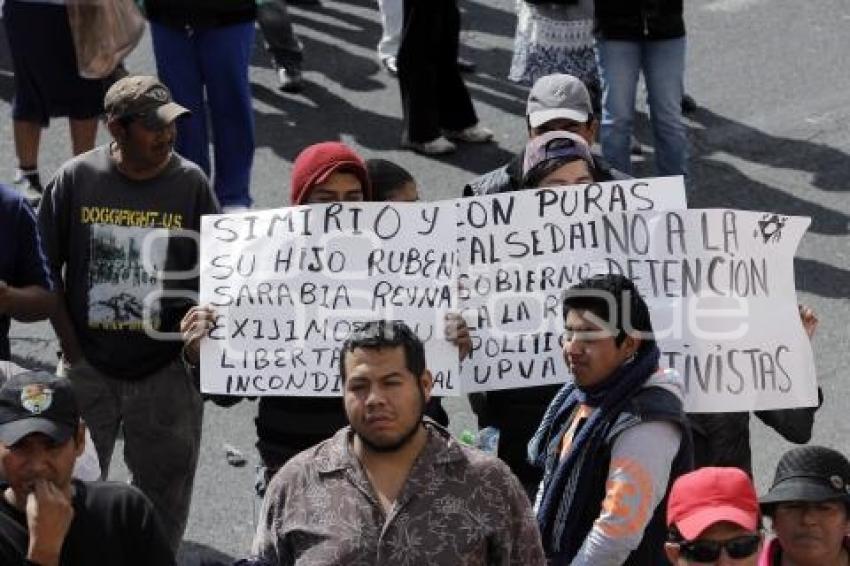 DOGGFIGHT U.S.
SIMIRO Y
SU HIJO RUBEN
SARABIA REYNA
EXIJIMOS SU
LIBERTAD
INCONDI
CON PURAS
FALSEDA
GOBIERNO
CA LA
POLITIC
UPVA
NO A LA
DETENCION
TIVISTAS